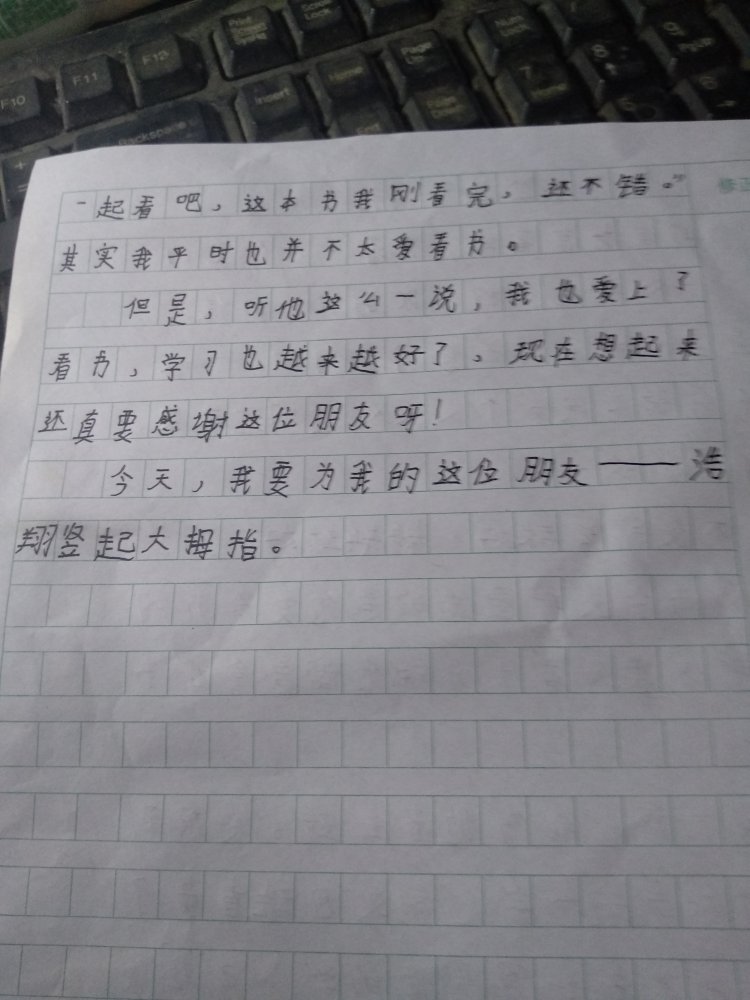 Print Screen
Scroll Lock
F10 F11 F12
Insert Home Page
Num Lock 7 8 9 PgUp
Backspace End
一起看吧，这本书我刚看完，还不错。”
其实我平时也并不太爱看书。
但是，听他这么一说，我也爱上了
看书，学习也越来越好了、现在想起来
还真要感谢这位朋友呀！
今天，我要为我的这位朋友——浩
翔竖起大拇指。